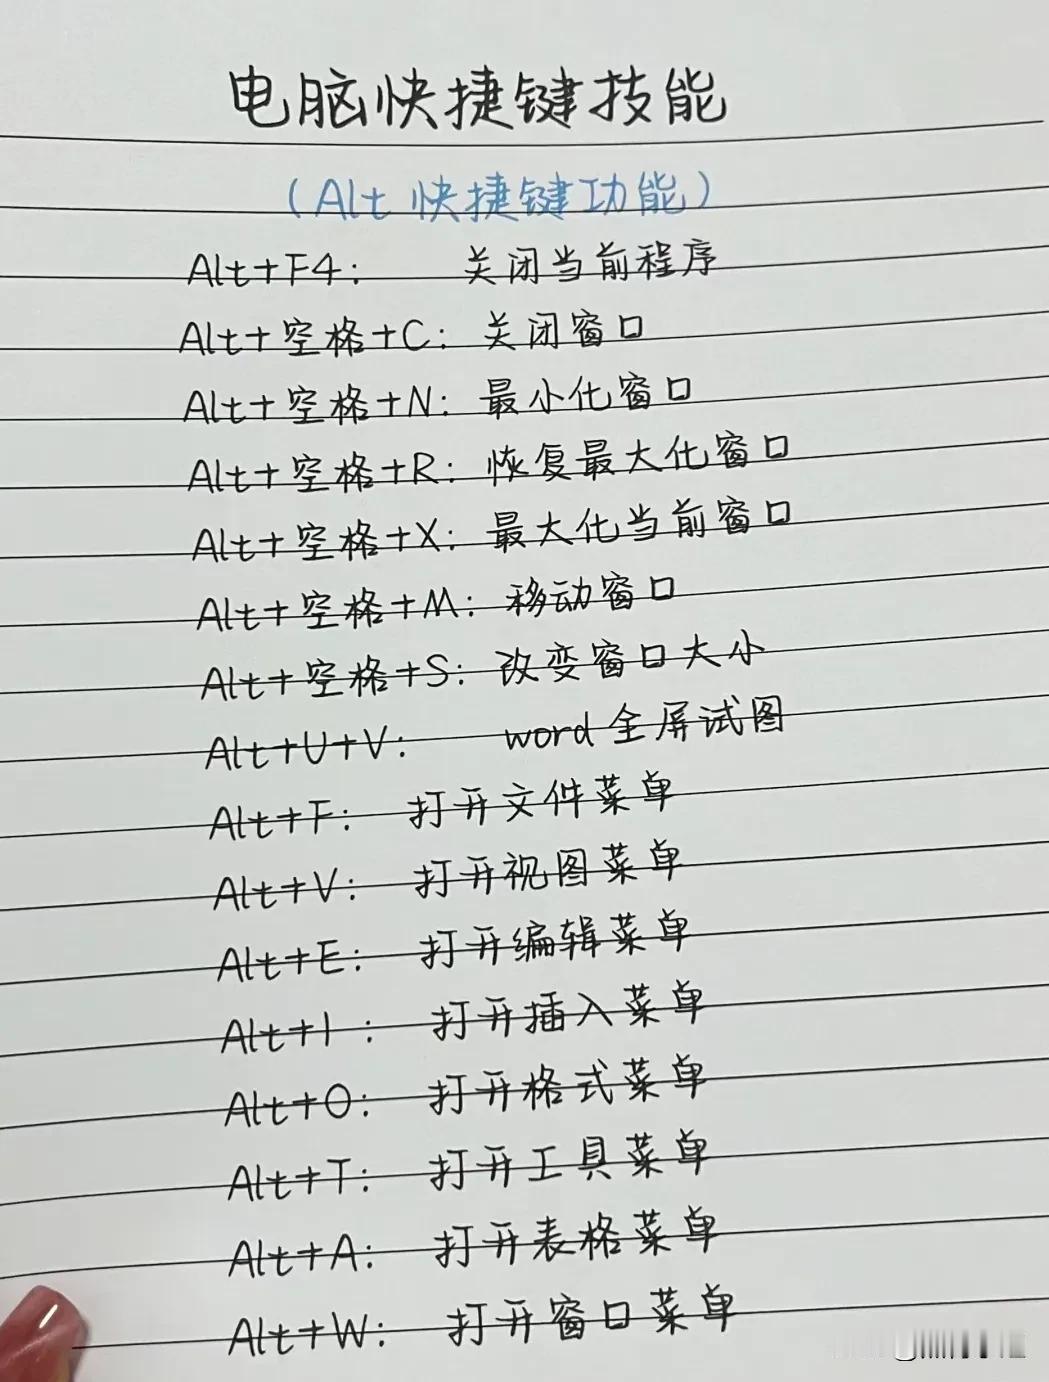 电脑快捷键技能
(Alt 快捷键功能)
Alt+F4: 关闭当前程序
Alt+空格+C: 关闭窗口
Alt+空格+N: 最小化窗口
Alt+空格+R: 恢复最大化窗口
Alt+空格+X: 最大化当前窗口
Alt+空格+M: 移动窗口
Alt+空格+S: 改变窗口大小
Alt+U+V: word全屏试图
Alt+F: 打开文件菜单
Alt+V: 打开视图菜单
Alt+E: 打开编辑菜单
Alt+I: 打开插入菜单
Alt+O: 打开格式菜单
Alt+T: 打开工具菜单
Alt+A: 打开表格菜单
Alt+W: 打开窗口菜单